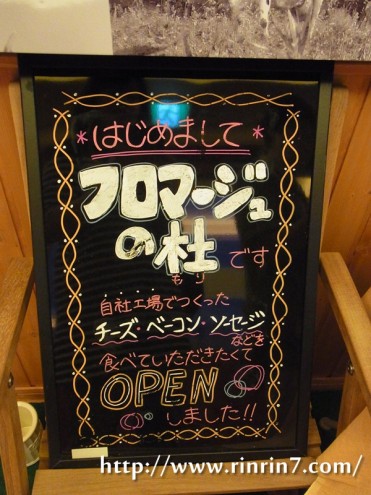 *はじめまして*
フロマージュ
の杜です
もり
自社工場でつくった
チーズ・ベーコン・ソーセージ
などを
食べていただきたくて
OPEN
しました!!
http://www.rinrin7.com/